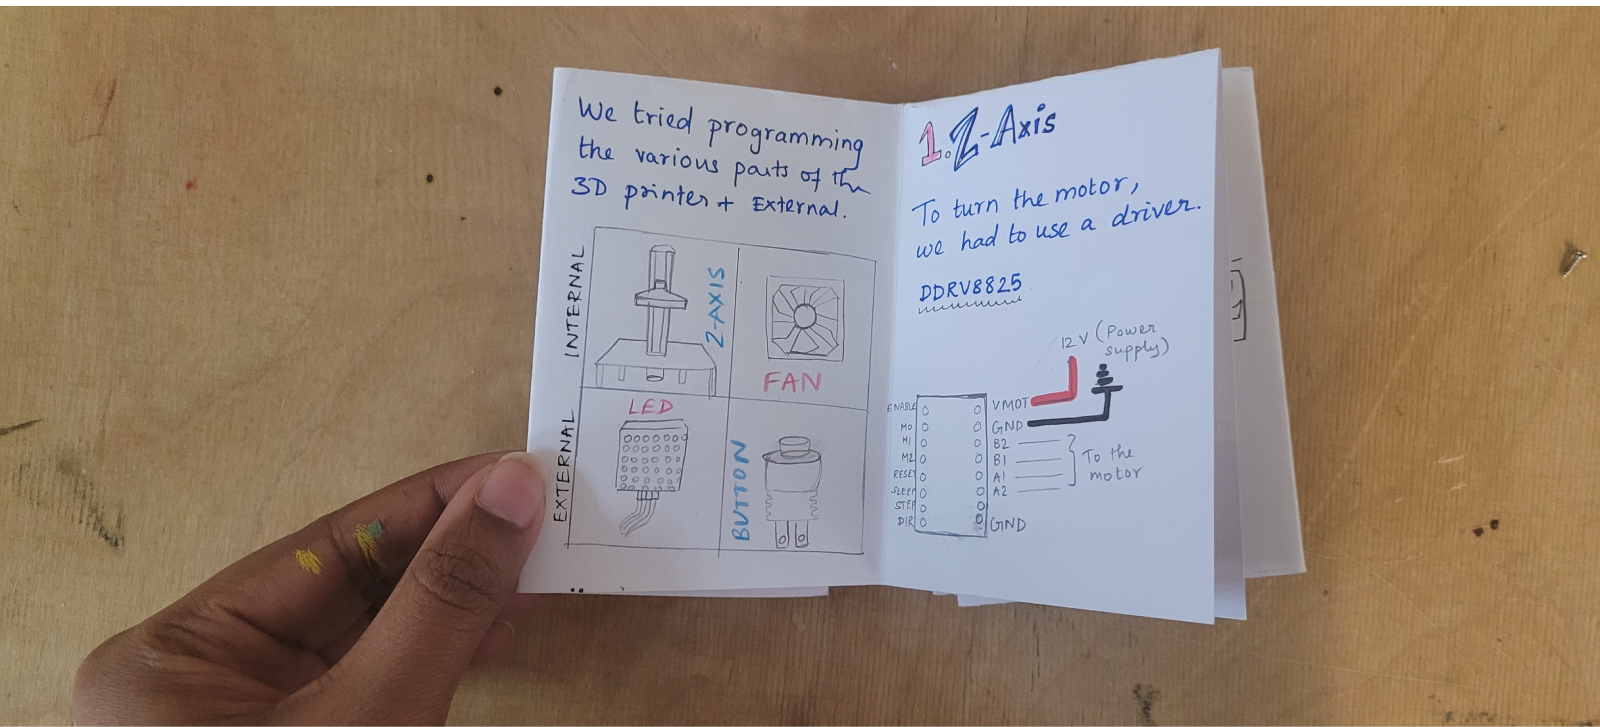 We tried programming
the various parts of the
3D printer + External.
INTERNAL
Z-AXIS
FAN
EXTERNAL
LED
BUTTON
1. Z-Axis
To turn the motor,
we had to use a driver.
DDRV8825
12 V (Power
supply)
ENABLE
M0
M1
M2
RESET
SLEEP
STEP
DIR
VMOT
GND
B2
B1
A1
A2
GND
To the
motor